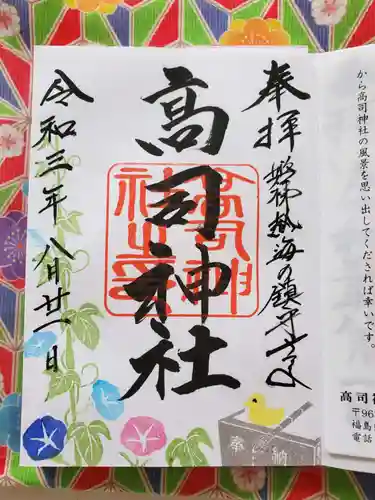 から高司神社の風景を思い出してくだされば幸いです。
高司
〒96
福島
電話
奉拝
磐梯熱海の鎮守さま
高司神社
高司神社之印
令和三年八月廿一日
奉納